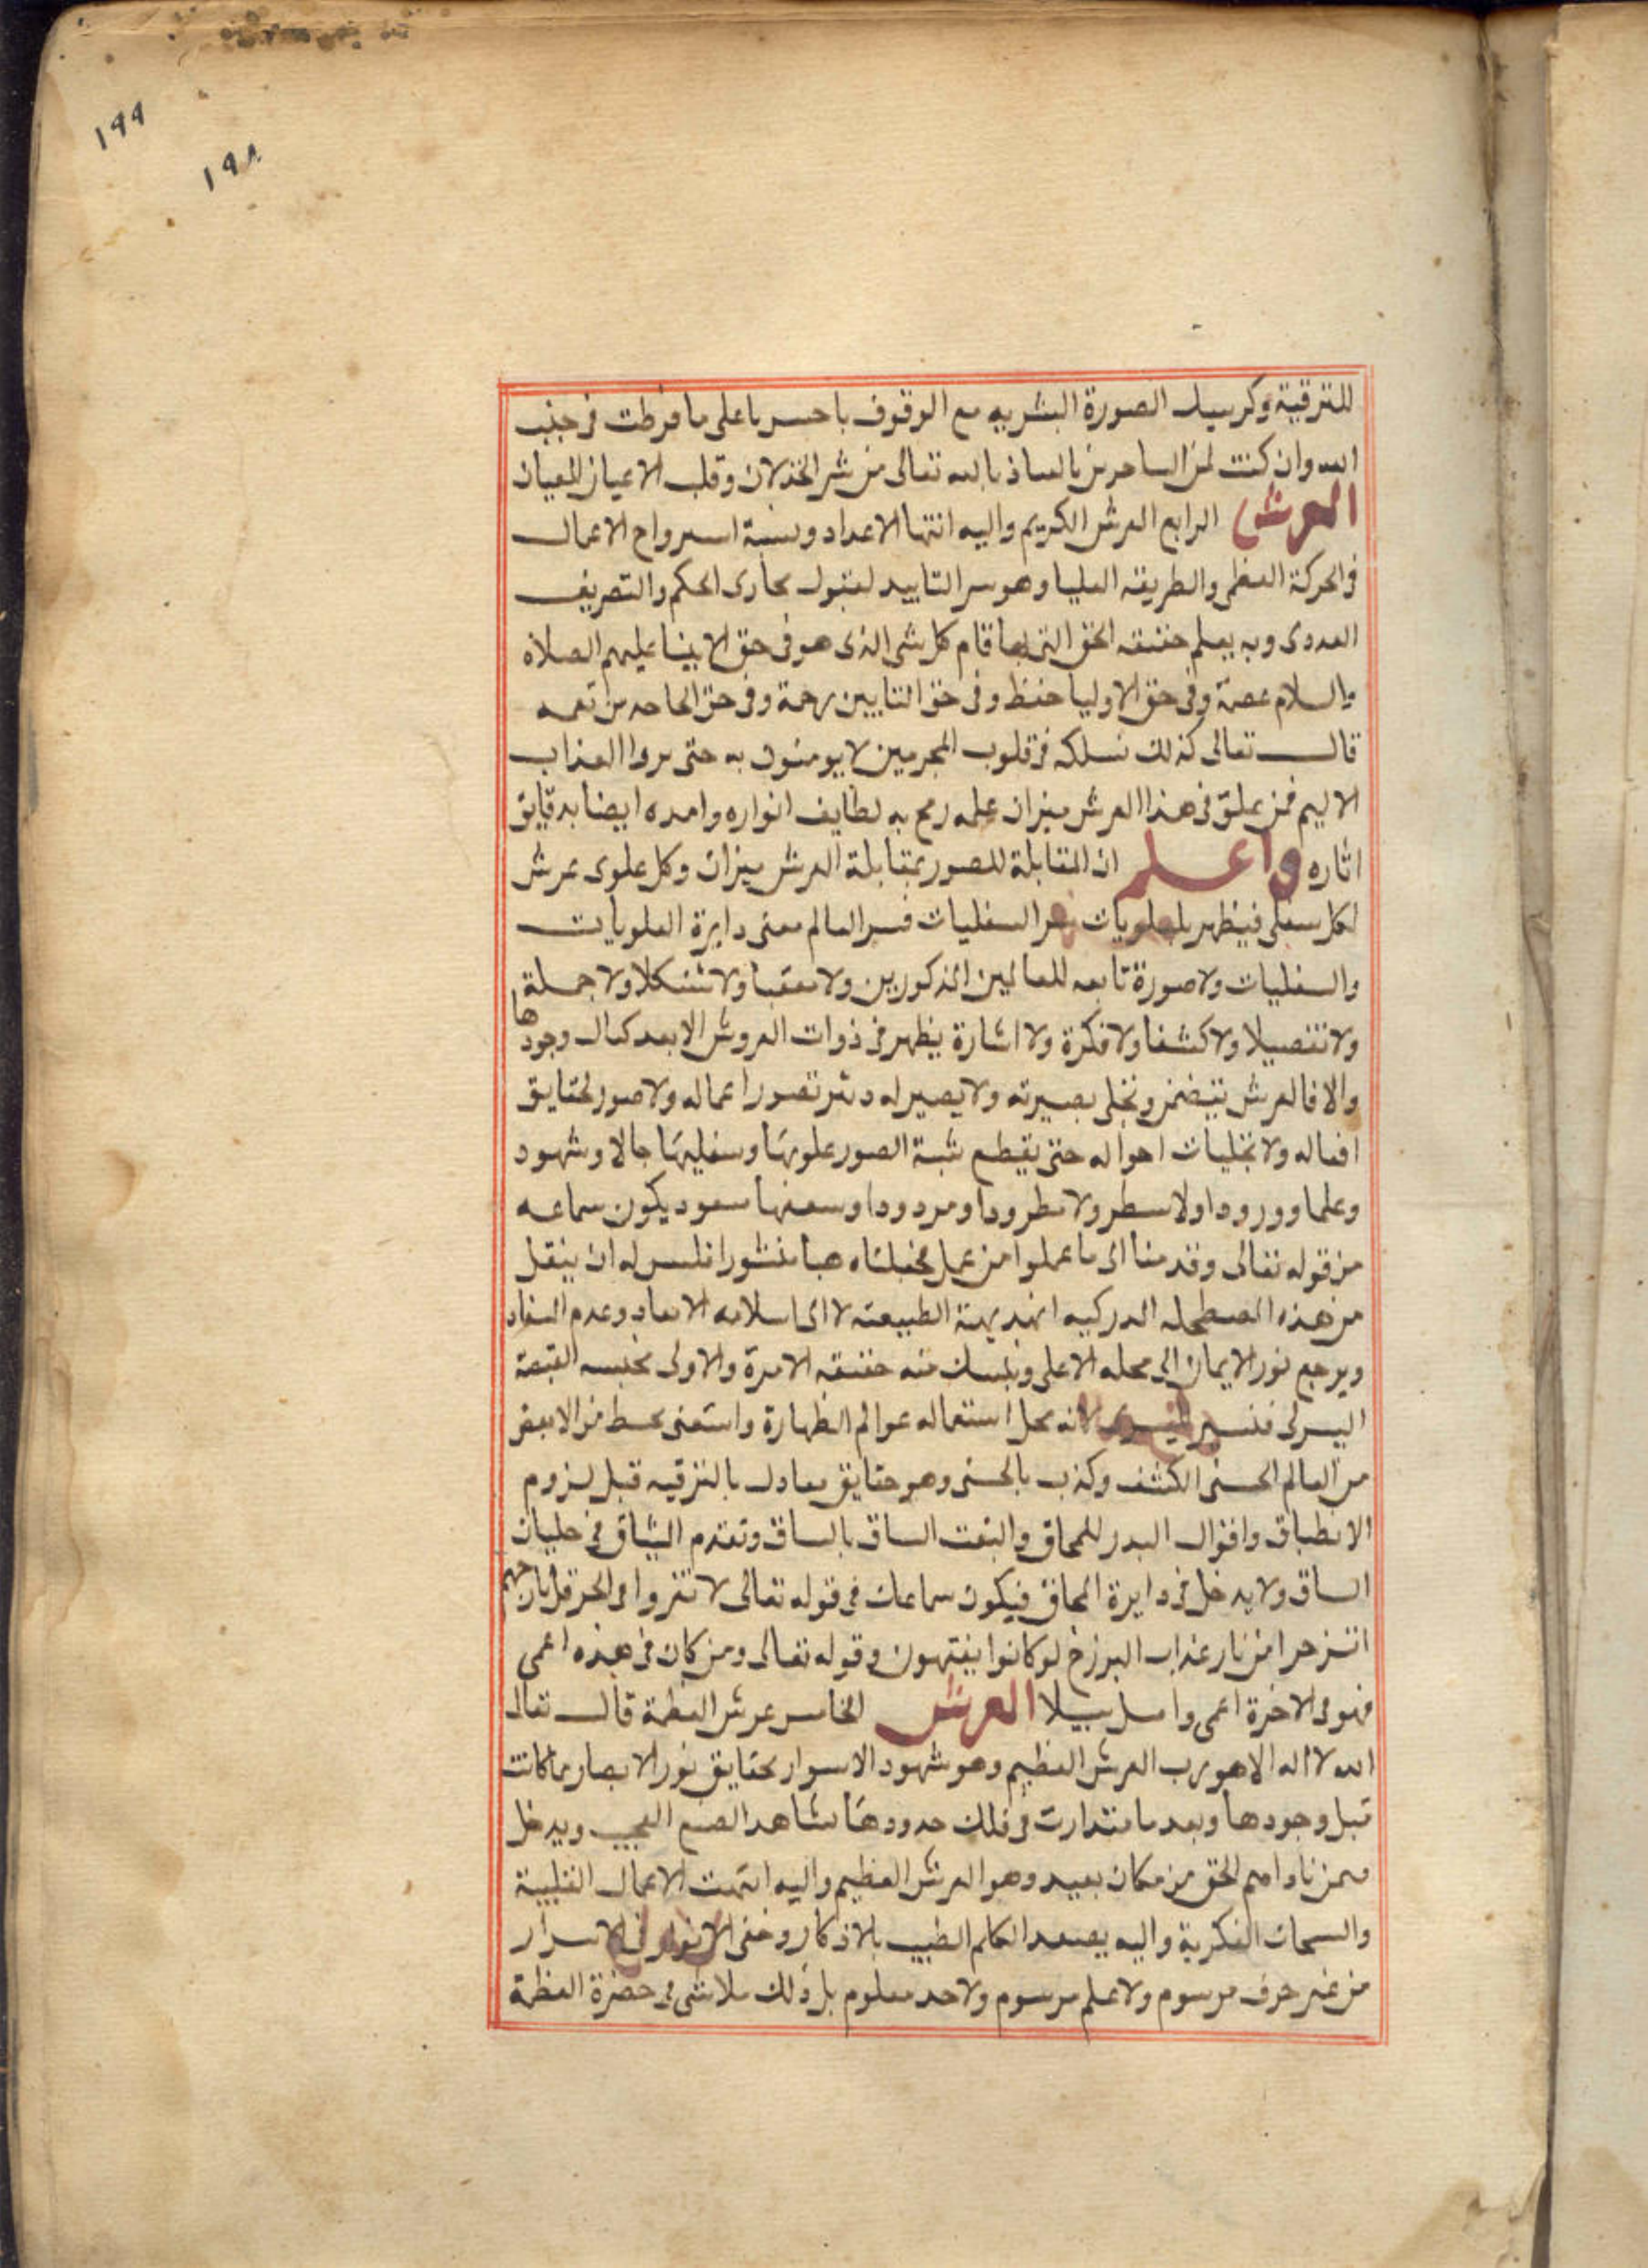 ١٩٩
١٩٨
للترقية وكرسيا الصورة البشريه مع الوقوف يا حسرتا على ما فرطت فى جنب
الله وان كنت لمن الساخرين بالعياذ بالله تعالى من شر الخذلان وقلب الاعيان للعيان
العرش الرابع العرش الكريم واليه انتها الاعداد ونسبة ارواح الاعمال
فى الحركة العظمى والطريقه العليا وهو سر التاييد لقبول مجارى الحكم والتصريف
العددى وبه يعلم حقيقه الحق التى بها قام كل شى الذى هو فى حق الانبيا عليهم الصلاه
والسلام عصمة وفى حق الاوليا حفظ وفى حق التايبين رحمة وفى حق الجاحدين نقمه
قال تعالى كذلك نسلكه فى قلوب المجرمين لا يومنون به حتى يروا العذاب
الاليم فمن علق فى هذا العرش ميزان علمه رمح به لطايف انواره وامده ايضا بدقايق
اثاره واعلم ان المقابلة للصور بمقابلة العرش ميزان وكل علوى عرش
لكل سفلى فيظهر بالعلويات سر السفليات فسر العالم معنى دايرة العلويات
والسفليات ولا صورة تابعه للعالمين المذكورين ولا معقبا ولا شكلا ولا جملة
ولا تفصيلا ولا كشفا ولا فكرة ولا اشارة يظهر فى ذوات العروش الا بعد كمال وجودها
والا فالعرش وتجلى بصيرته ولا يصير له تصور اعماله ولا صور لحقايق
افعاله ولا تجليات احواله حتى يقطع شبة الصور علويها وسفليها حالا وشهود
وعلما وورودا ولا سطر ولا مطرودا ومردودا يكون سماعه
من قوله تعالى وقدمنا الى ما عملوا من عمل فجعلناه هبا منثورا فليس له ان ينقل
من هذه الدركيه الطبيعته لا الى وعدم
ويرجع نور الايمان الى محله الاعلى ويمسك منه حقيقه الامرة والاولى القبضة
اليسرى لانه محل استعماله عوالم الطهارة واستغنى من الا بعض
من العالم الحسنى الكشف وكذب بالحسنى وهو حقايق معادل بالترقيه قبل لزوم
الانطباق وافوال البدر للمحاق والتفت الساق بالساق وتقدم فى
الساق ولا يدخل فى دايرة المحاق فيكون سماعك فى قوله تعالى لا تنفروا فى الحر قل نار جهنم
اشد حرا من نار عذاب البرزخ لو كانوا يفقهون وقوله تعالى ومن كان فى هذه اعمى
فهو فى الاخرة اعمى واضل سبيلا العرش الخامس عرش العظمة قال تعالى
الله لا اله الا هو رب العرش العظيم وهو شهود الاسرار بحقايق نور الابصار بما كانت
قبل وجودها وبعد ما فى فلك حدودها شاهد الصنع العجيب ويدخل
فيمن ناداهم الحق من مكان بعيد وهو العرش العظيم واليه انتهت الاعمال القلبية
والسبحات الفكرية واليه يصعد الكلم الطيب بالاذكار وخفى الانوار الاسرار
من غير حرف مرسوم ولا علم مرسوم ولا حد معلوم بل ذلك متلاشى فى حضرة العظمة